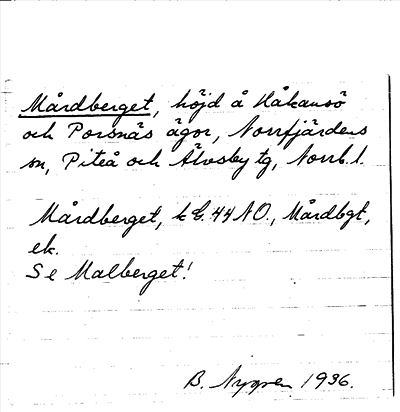 Mårdberget, höjd å Håkansö
och Porsnäs ägor, Norrfjärdens
sn, Piteå och Älvsby tg, Norrb. l.
Mårdberget, k G. 44 NO., Mårdbgt,
ek.
Se Malberget!
B. Nygren 1936.